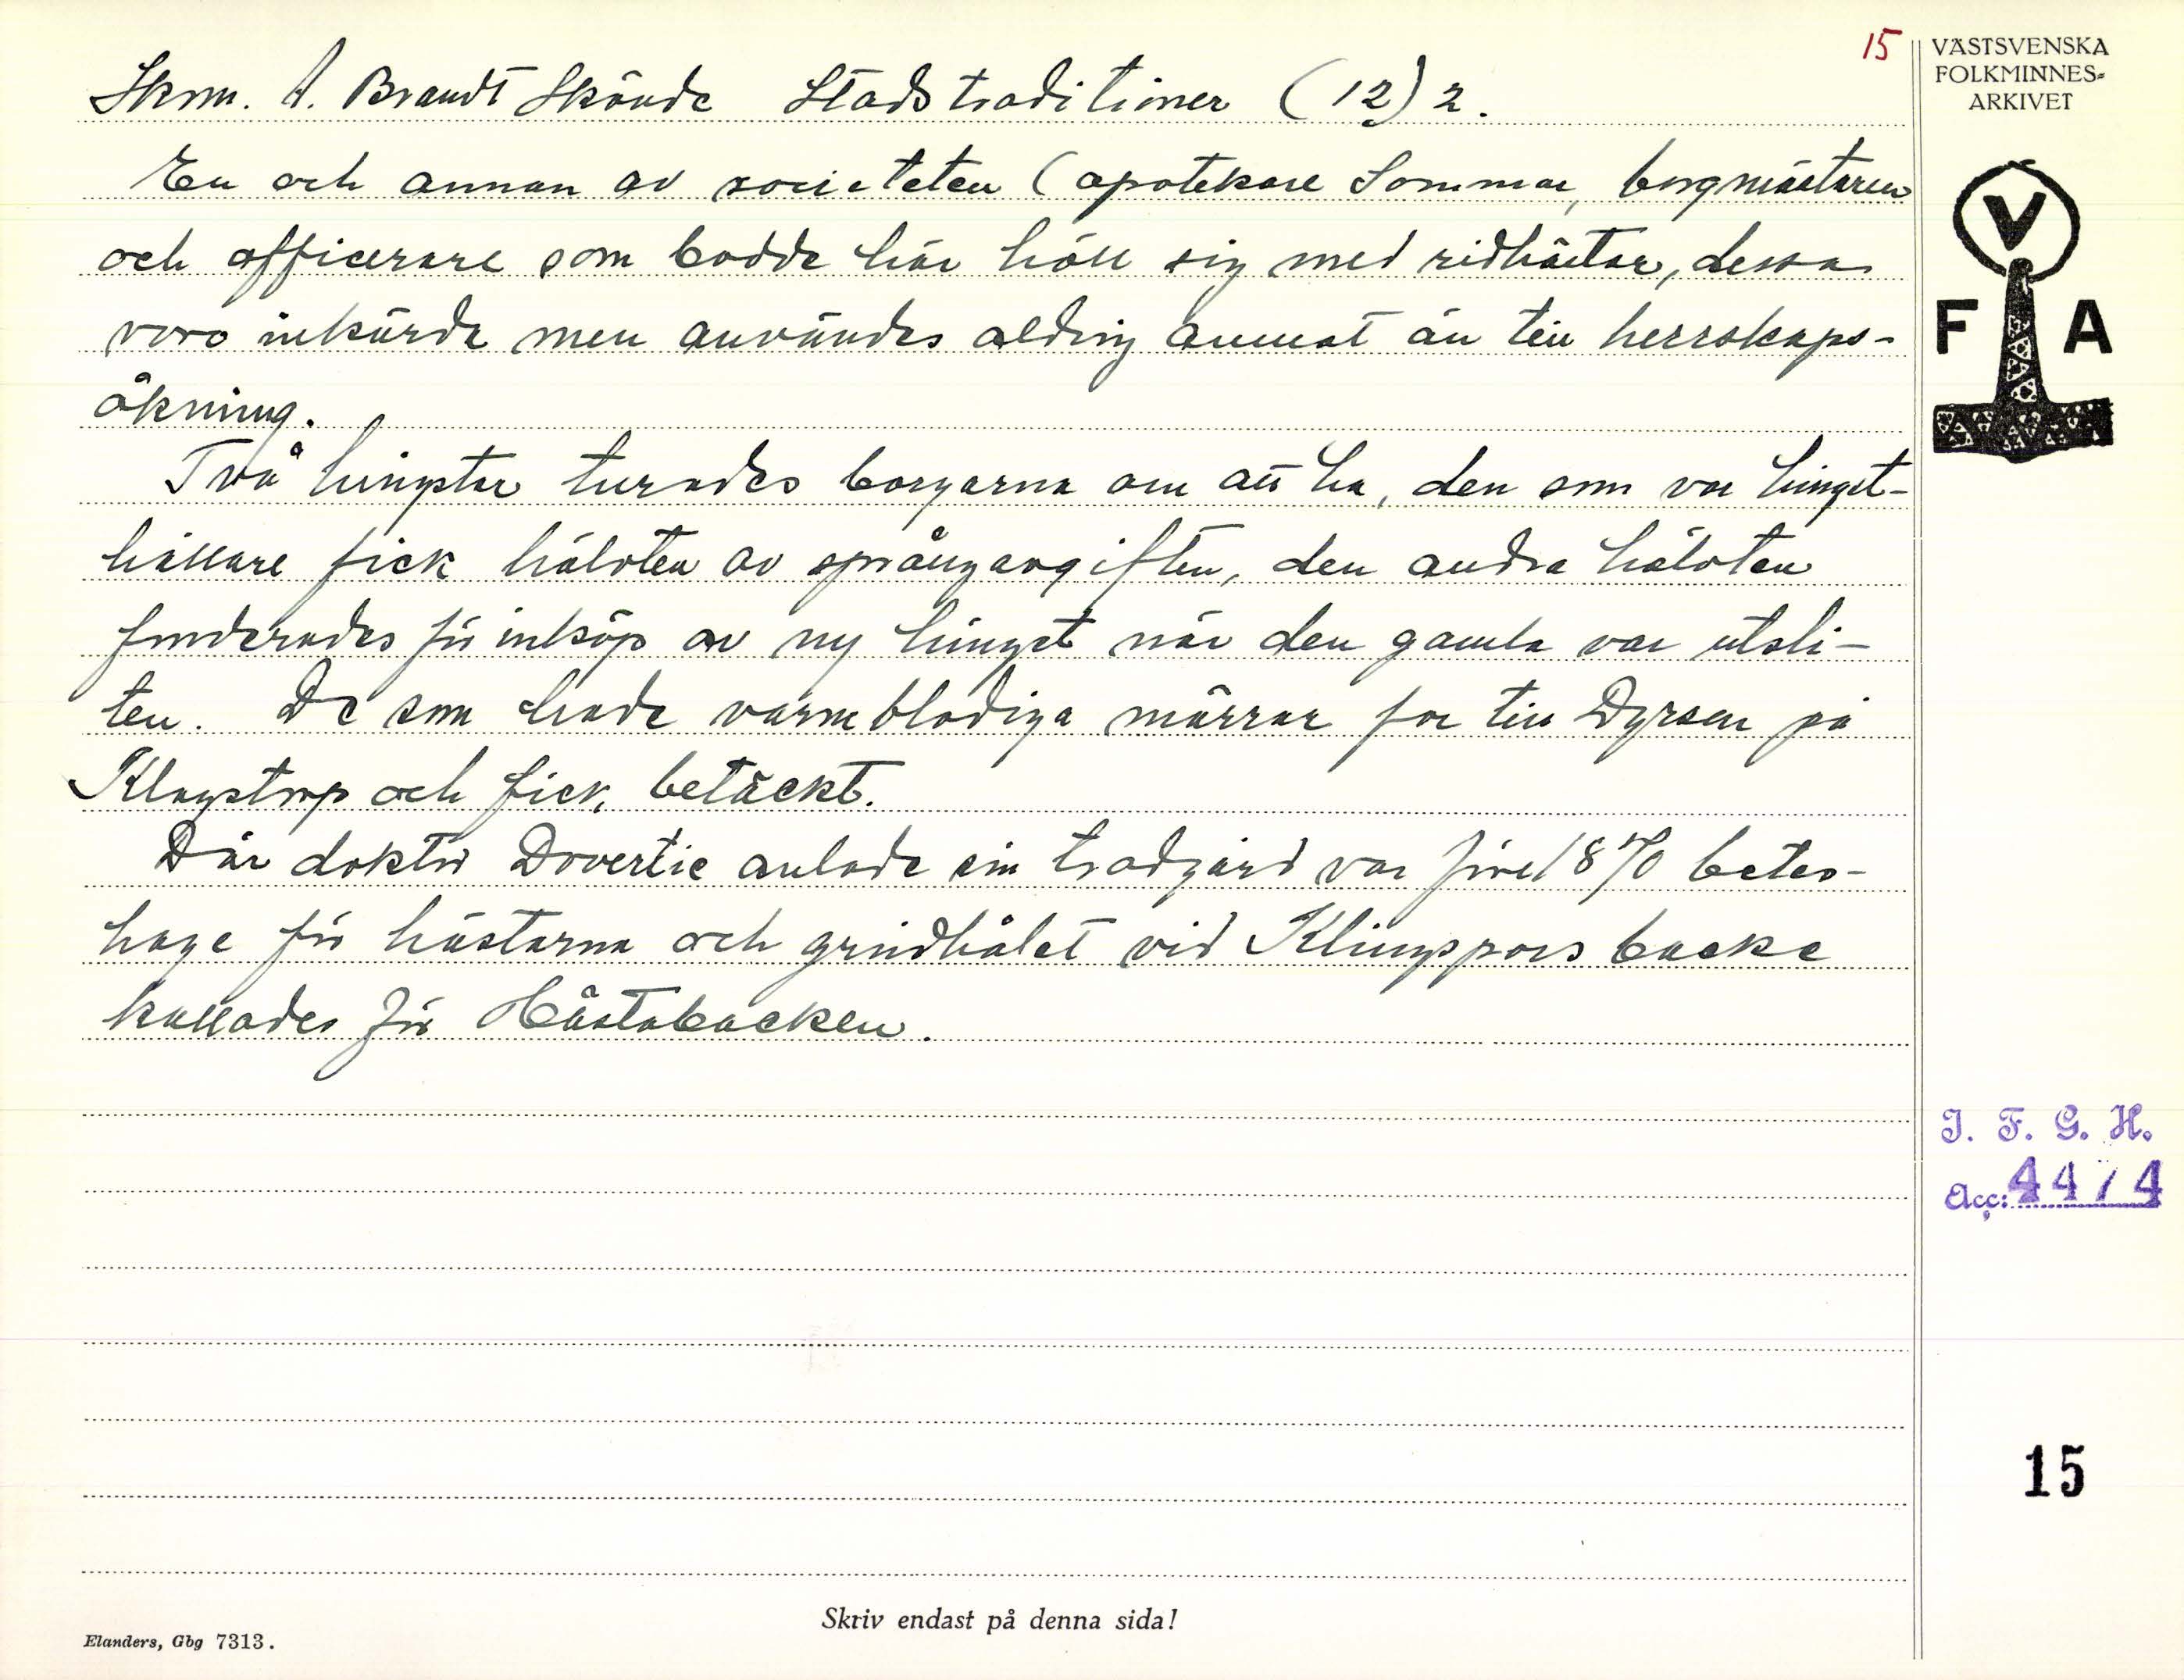 15
VÄSTSVENSKA
FOLKMINNES-
ARKIVET
Skrm. A. Brandt Skövde Stadstraditioner (12) 2.
En och annan av societeten (apotekare Sommar, borgmästaren
och officerare som bodde här höll sig med ridhästar, dessa
voro inkörda men användes aldrig annat än till herrskaps-
åkning.
Två hingstar turades borgarna om att ha, den som var hingst-
hållare fick hälvten av språngavgiften, den andra hälvten
funderades för inköp av ny hingst när den gamla var utsli-
ten. De som hade varmblodiga märrar for till Dyrsen på
Klagstorp och fick betäckt.
Där doktor Dovertie anlade sin trädgård var före 1870 betes-
hage för hästarna och grindhålet vid Klingspors backe
kallades för Hästabacken.
V
F A
I. F. G. H.
Acc: 4474
15
Skriv endast på denna sida!
Elanders, Gbg 7313.